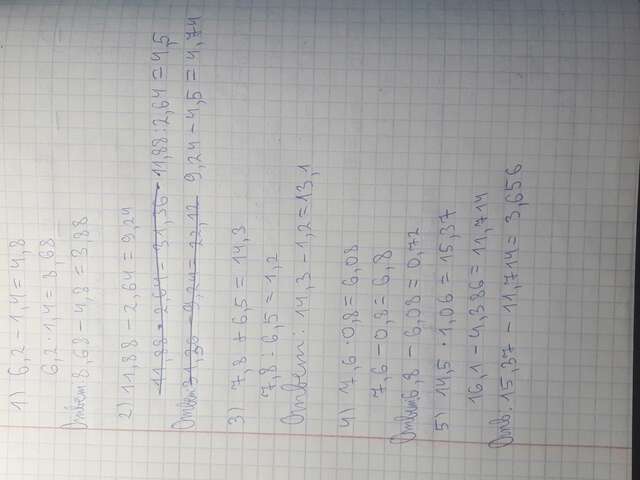 1) 6,2 - 1,4 = 4,8
6,2 · 1,4 = 8,68
Ответ 8,68 - 4,8 = 3,88
2) 11,88 - 2,64 = 9,24
11,88 : 2,64 = 4,5
Ответ 9,24 - 4,5 = 4,74
3) 7,8 + 6,5 = 14,3
7,8 : 6,5 = 1,2
Ответ: 14,3 - 1,2 = 13,1
4) 7,6 · 0,8 = 6,08
7,6 - 0,8 = 6,8
Ответ 6,8 - 6,08 = 0,72
5) 14,5 · 1,06 = 15,37
16,1 - 4,386 = 11,714
Отв. 15,37 - 11,714 = 3,656